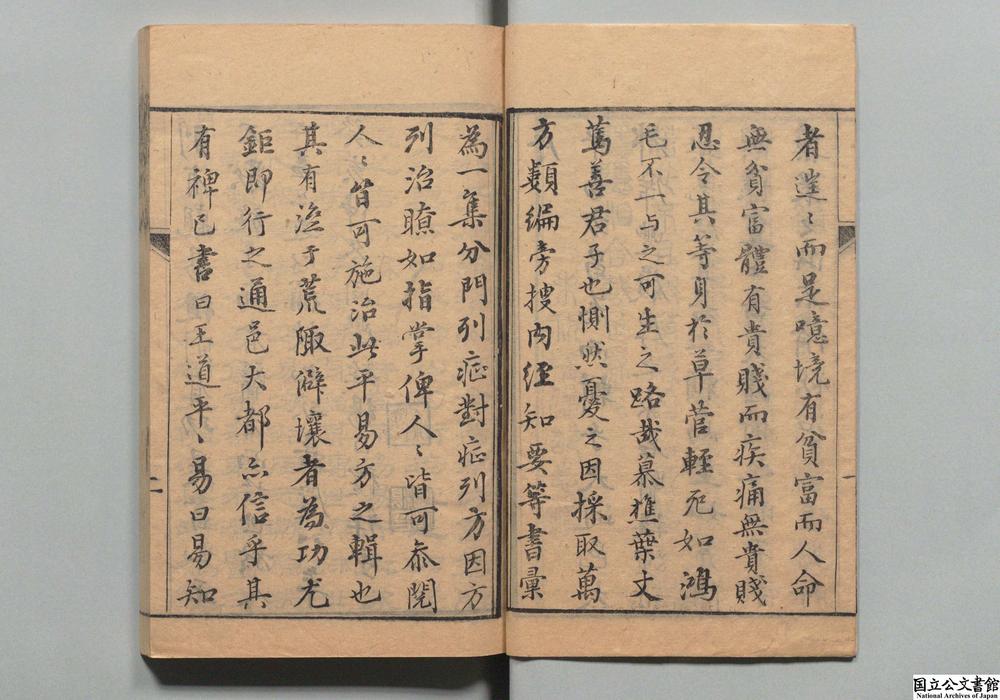 者蓬〻而是噫境有貧富而人命
無貧富體有貴賤而疾痛無貴賤
忍令其等身於草菅輕死如鴻
毛不一与之可生之路哉慕樵葉丈
篤善君子也惻然憂之因採取萬
方類編旁搜内經知要等書彙
為一集分門列症對症列方因方
列治瞭如指掌俾人〻皆可叅閱
人〻皆可施治此平易方之輯也
其有濟于荒陬僻壤者為功尤
鉅即行之通邑大都亦信乎其
有裨已書曰王道平〻易曰易知
一
二
国立公文書館
National Archives of Japan